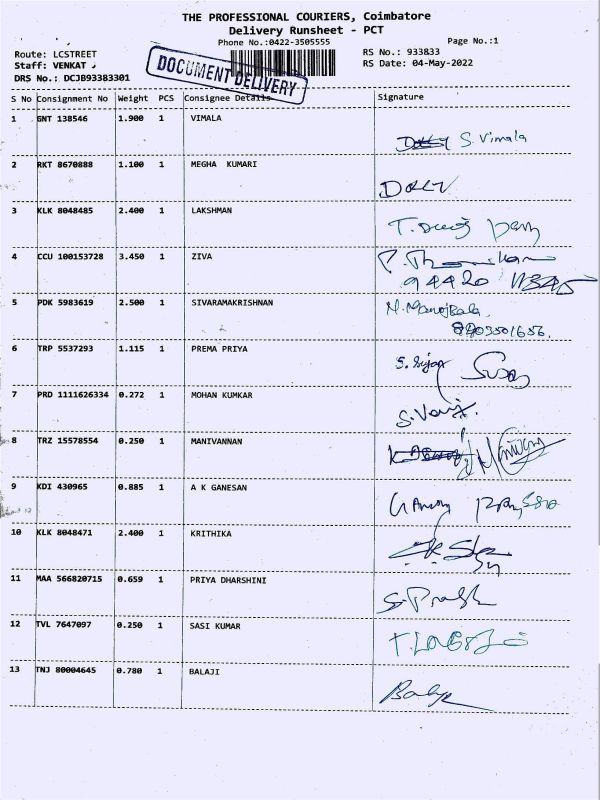 THE PROFESSIONAL COURIERS, Coimbatore
Delivery Runsheet - PCT
Phone No.:0422-3505555
Page No.:1
Route: LCSTREET
RS No.: 933833
Staff: VENKAT
RS Date: 04-May-2022
DRS No.: DCJB93383301
DOCUMENT DELIVERY
S No Consignment No Weight PCS Consignee Details Signature
1 GNT 138546 1.900 1 VIMALA
S. Vimala
2 RKT 8670888 1.100 1 MEGHA KUMARI
3 KLK 8048485 2.400 1 LAKSHMAN
4 CCU 100153728 3.450 1 ZIVA
94420
5 PDK 5983619 2.500 1 SIVARAMAKRISHNAN
N. Manojbala
6 TRP 5537293 1.115 1 PREMA PRIYA
7 PRD 1111626334 0.272 1 MOHAN KUMKAR
8 TRZ 15578554 0.250 1 MANIVANNAN
9 KDI 430965 0.885 1 A K GANESAN
10 KLK 8048471 2.400 1 KRITHIKA
11 MAA 566820715 0.659 1 PRIYA DHARSHINI
12 TVL 7647097 0.250 1 SASI KUMAR
13 TNJ 80004645 0.780 1 BALAJI